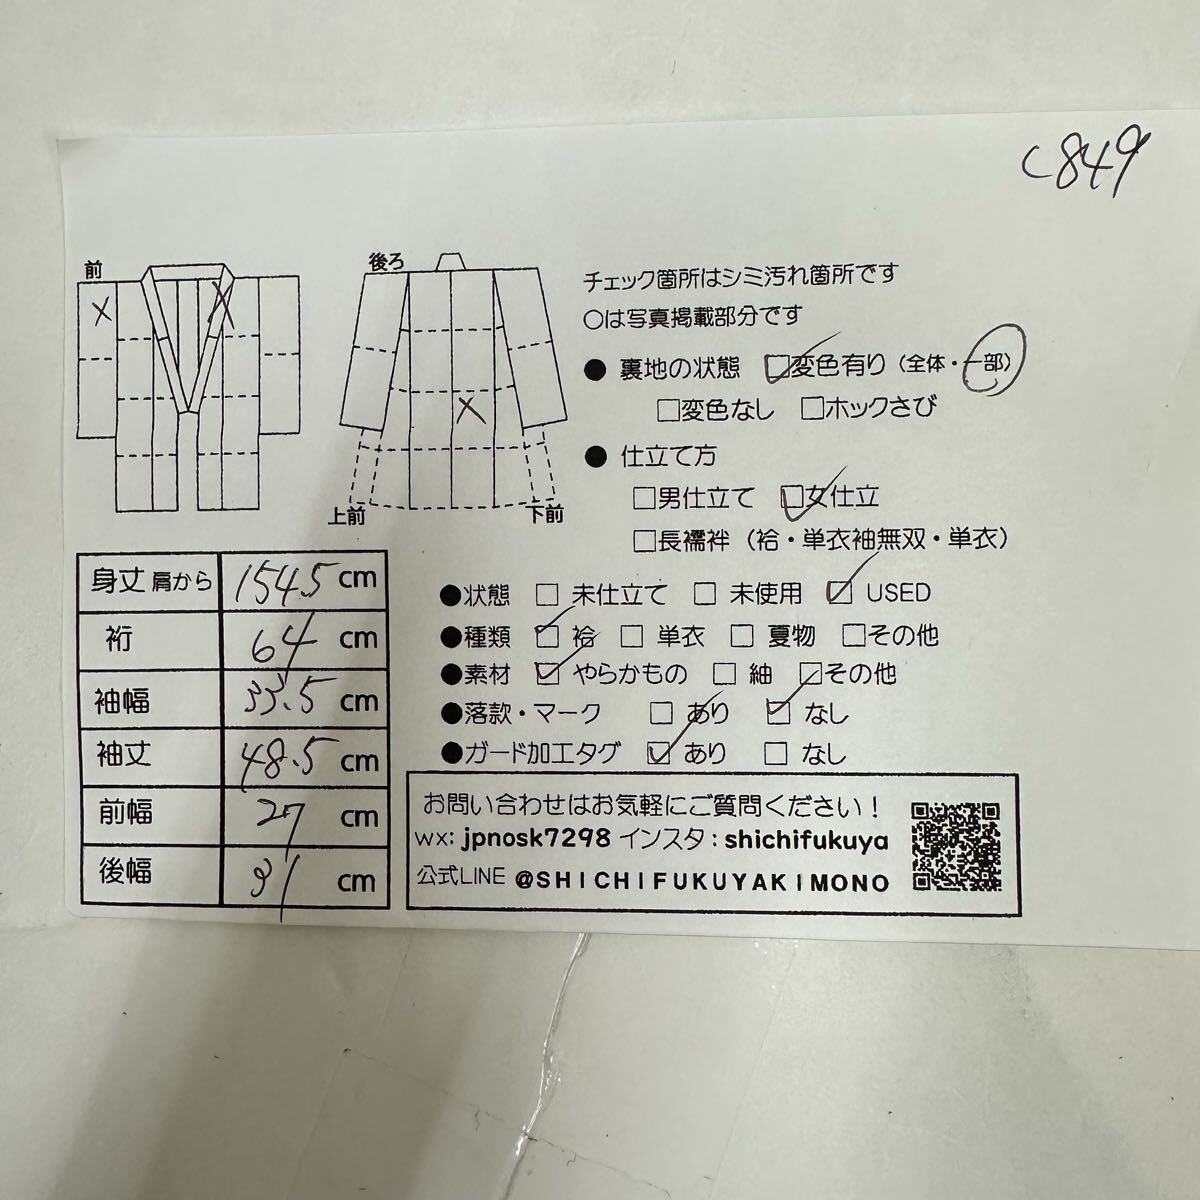 C849
前
後ろ
上前
下前
チェック箇所はシミ汚れ箇所です
○は写真掲載部分です
● 裏地の状態 □変色有り (全体・一部)
□変色なし □ホックさび
● 仕立て方
□男仕立て □女仕立
□長襦袢 (袷・単衣袖無双・単衣)
●状態 □ 未仕立て □ 未使用 □ USED
●種類 □ 袷 □ 単衣 □ 夏物 □その他
●素材 □ やらかもの □ 紬 □その他
●落款・マーク □ あり □ なし
●ガード加工タグ □ あり □ なし
身丈 肩から 154.5 cm
裄 64 cm
袖幅 33.5 cm
袖丈 48.5 cm
前幅 27 cm
後幅 31 cm
お問い合わせはお気軽にご質問ください！
wx: jpnosk7298 インスタ : shichifukuya
公式LINE @SHICHIFUKUYAKIMONO